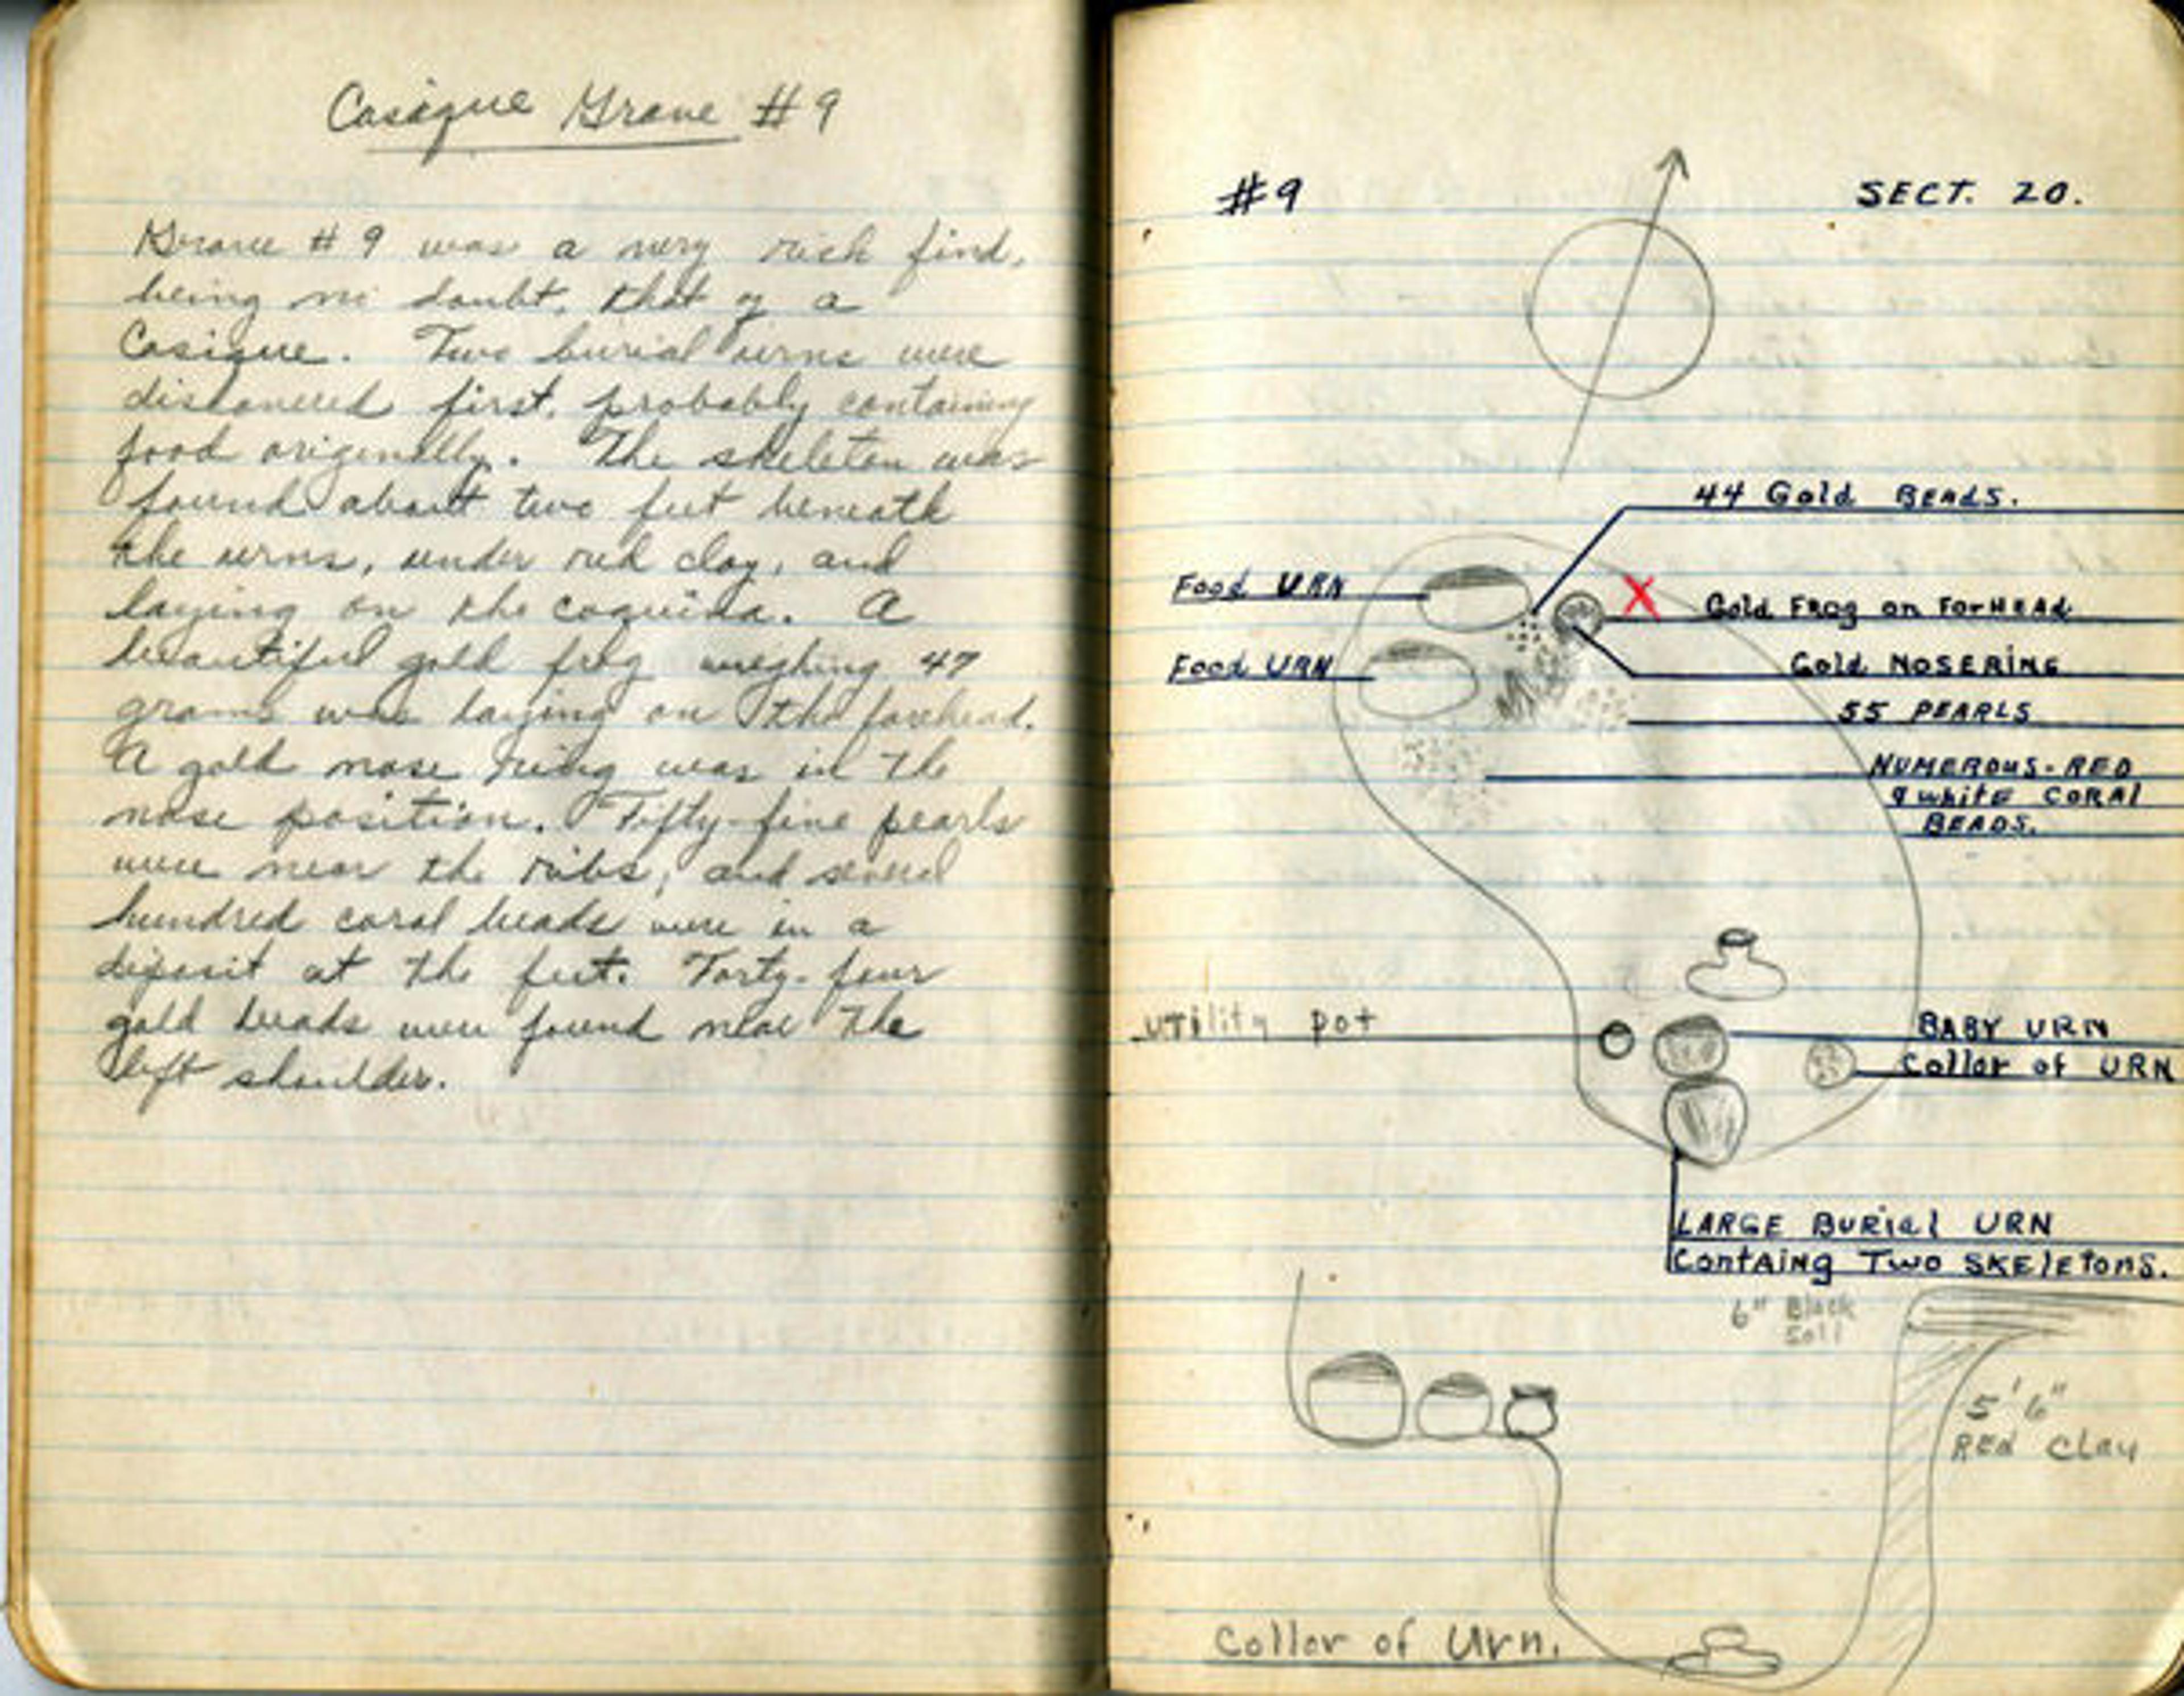 Casique Grave #9
Grave #9 was a very rich find,
being no doubt, that of a
Casique. Two burial urns were
discovered first, probably containing
food originally. The skeleton was
found about two feet beneath
the urns, under red clay, and
laying on the coquina. A
beautiful gold frog weighing 47
grams was laying on the forehead.
A gold nose ring was in the
nose position. Fifty-five pearls
were near the ribs, and several
hundred coral beads were in a
deposit at the feet. Forty-four
gold beads were found near the
left shoulder.
#9
SECT. 20.
44 Gold BEADS.
Food URN
Gold FROG on ForHEAD
Food URN
Gold NOSERING
55 PEARLS
NUMEROUS-RED
& white CORAl
BEADS.
Utility pot
BABY URN
Collar of URN
LARGE BURial URN
Containg Two SKElEtons.
6" Black
Soil
5'6"
RED Clay
Collar of Urn.